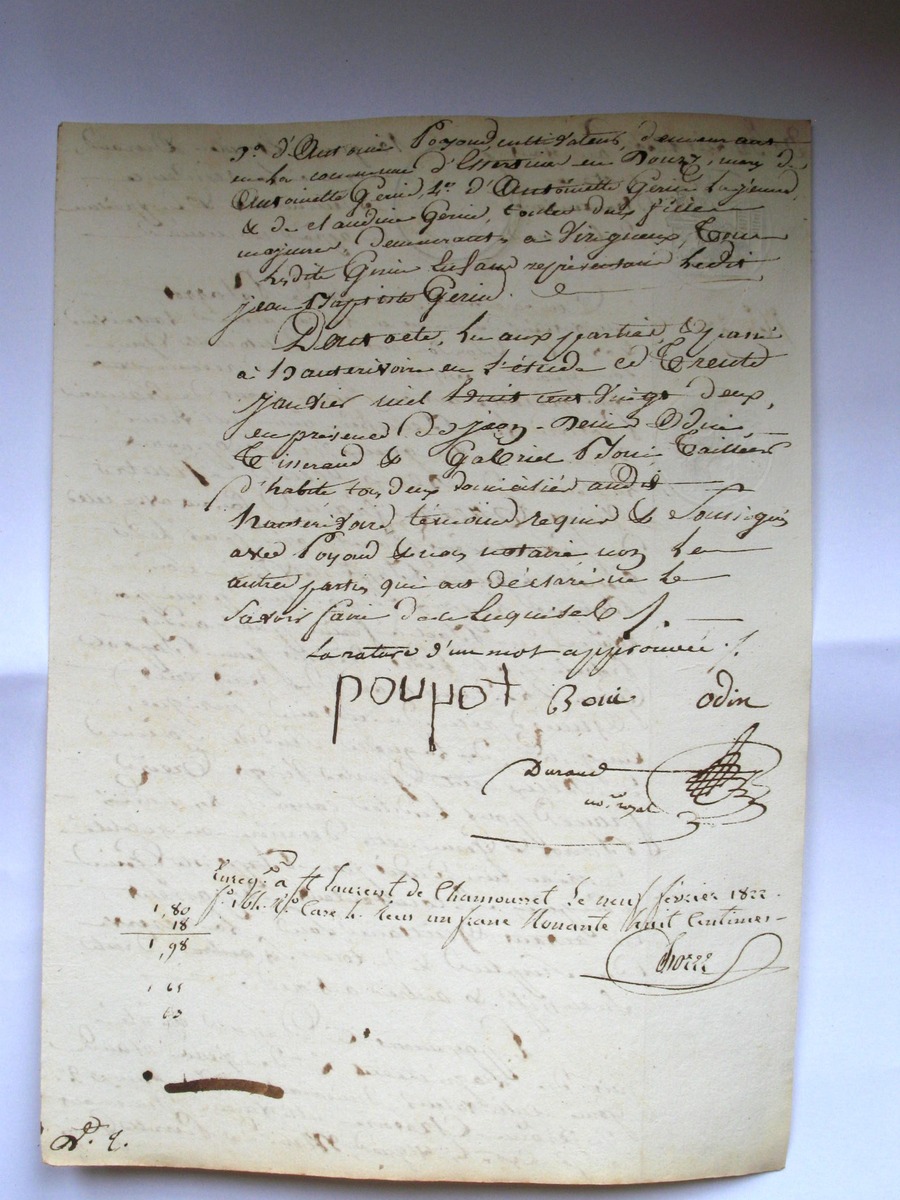 3o. d'Antoine Poyard cultivateur, demeurant
en la commune d'Essertine en Donzy, mary de
Antoinette Gerin, 4o. d'Antoinette Gerin la jeune,
& de claudine Gerin, toutes deux filles
majeures demeurants à Virigneux, tous
lesdits Gerin enfans représentans ledit
jean Baptiste Gerin.
Dont acte, lu aux parties, & passé
à hauterivoire en l'étude ce Trente
janvier mil huit cent vingt deux,
en présence de jean-Denis Odin,
Tisserand & Gabriel Boüi Tailleur
d'habits tous deux domiciliés audit
hauterivoire témoins requis & soussignés
avec Poyard & nous notaire non les
autres parties qui ont déclaré ne le
savoir faire de ce enquises
la rature d'un mot approuvée.
poupot Boüi odin
Durand
no.re royal
Enregé. à St Laurent de Chamousset le neuf février 1822.
fo. 106 Ro. Case 4. Reçu un franc Nonante huit Centimes
1,80
18
1,98
1 65
63